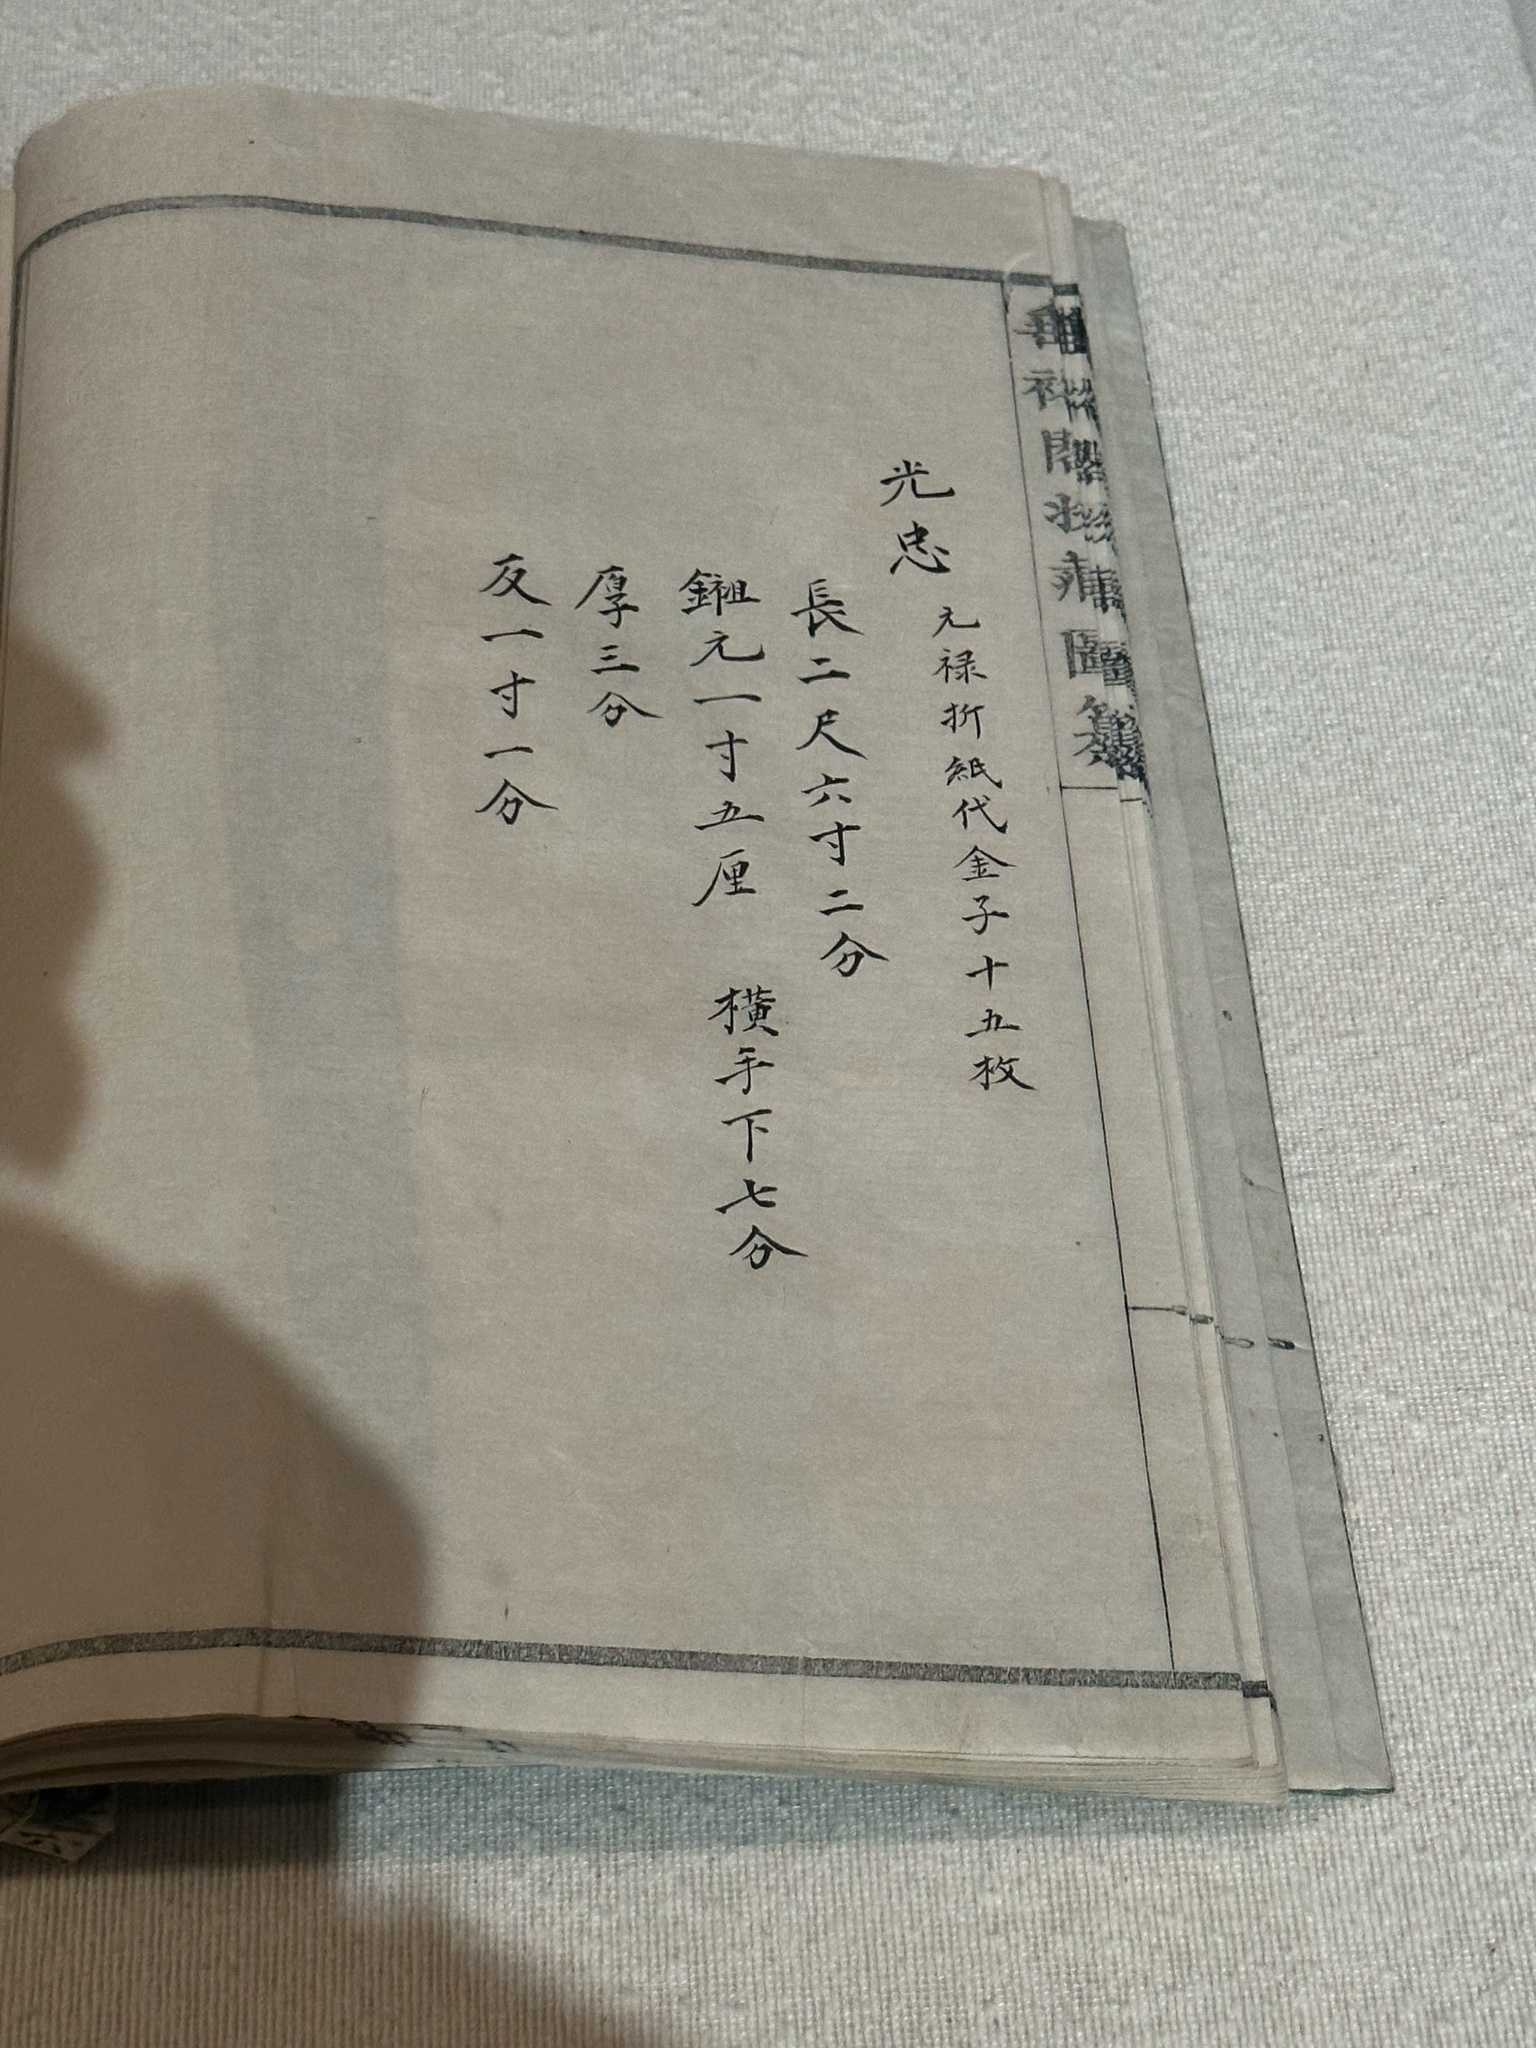 光忠 元禄折紙代金子十五枚
長二尺六寸二分
鎺元一寸五厘 横手下七分
厚三分
反一寸一分